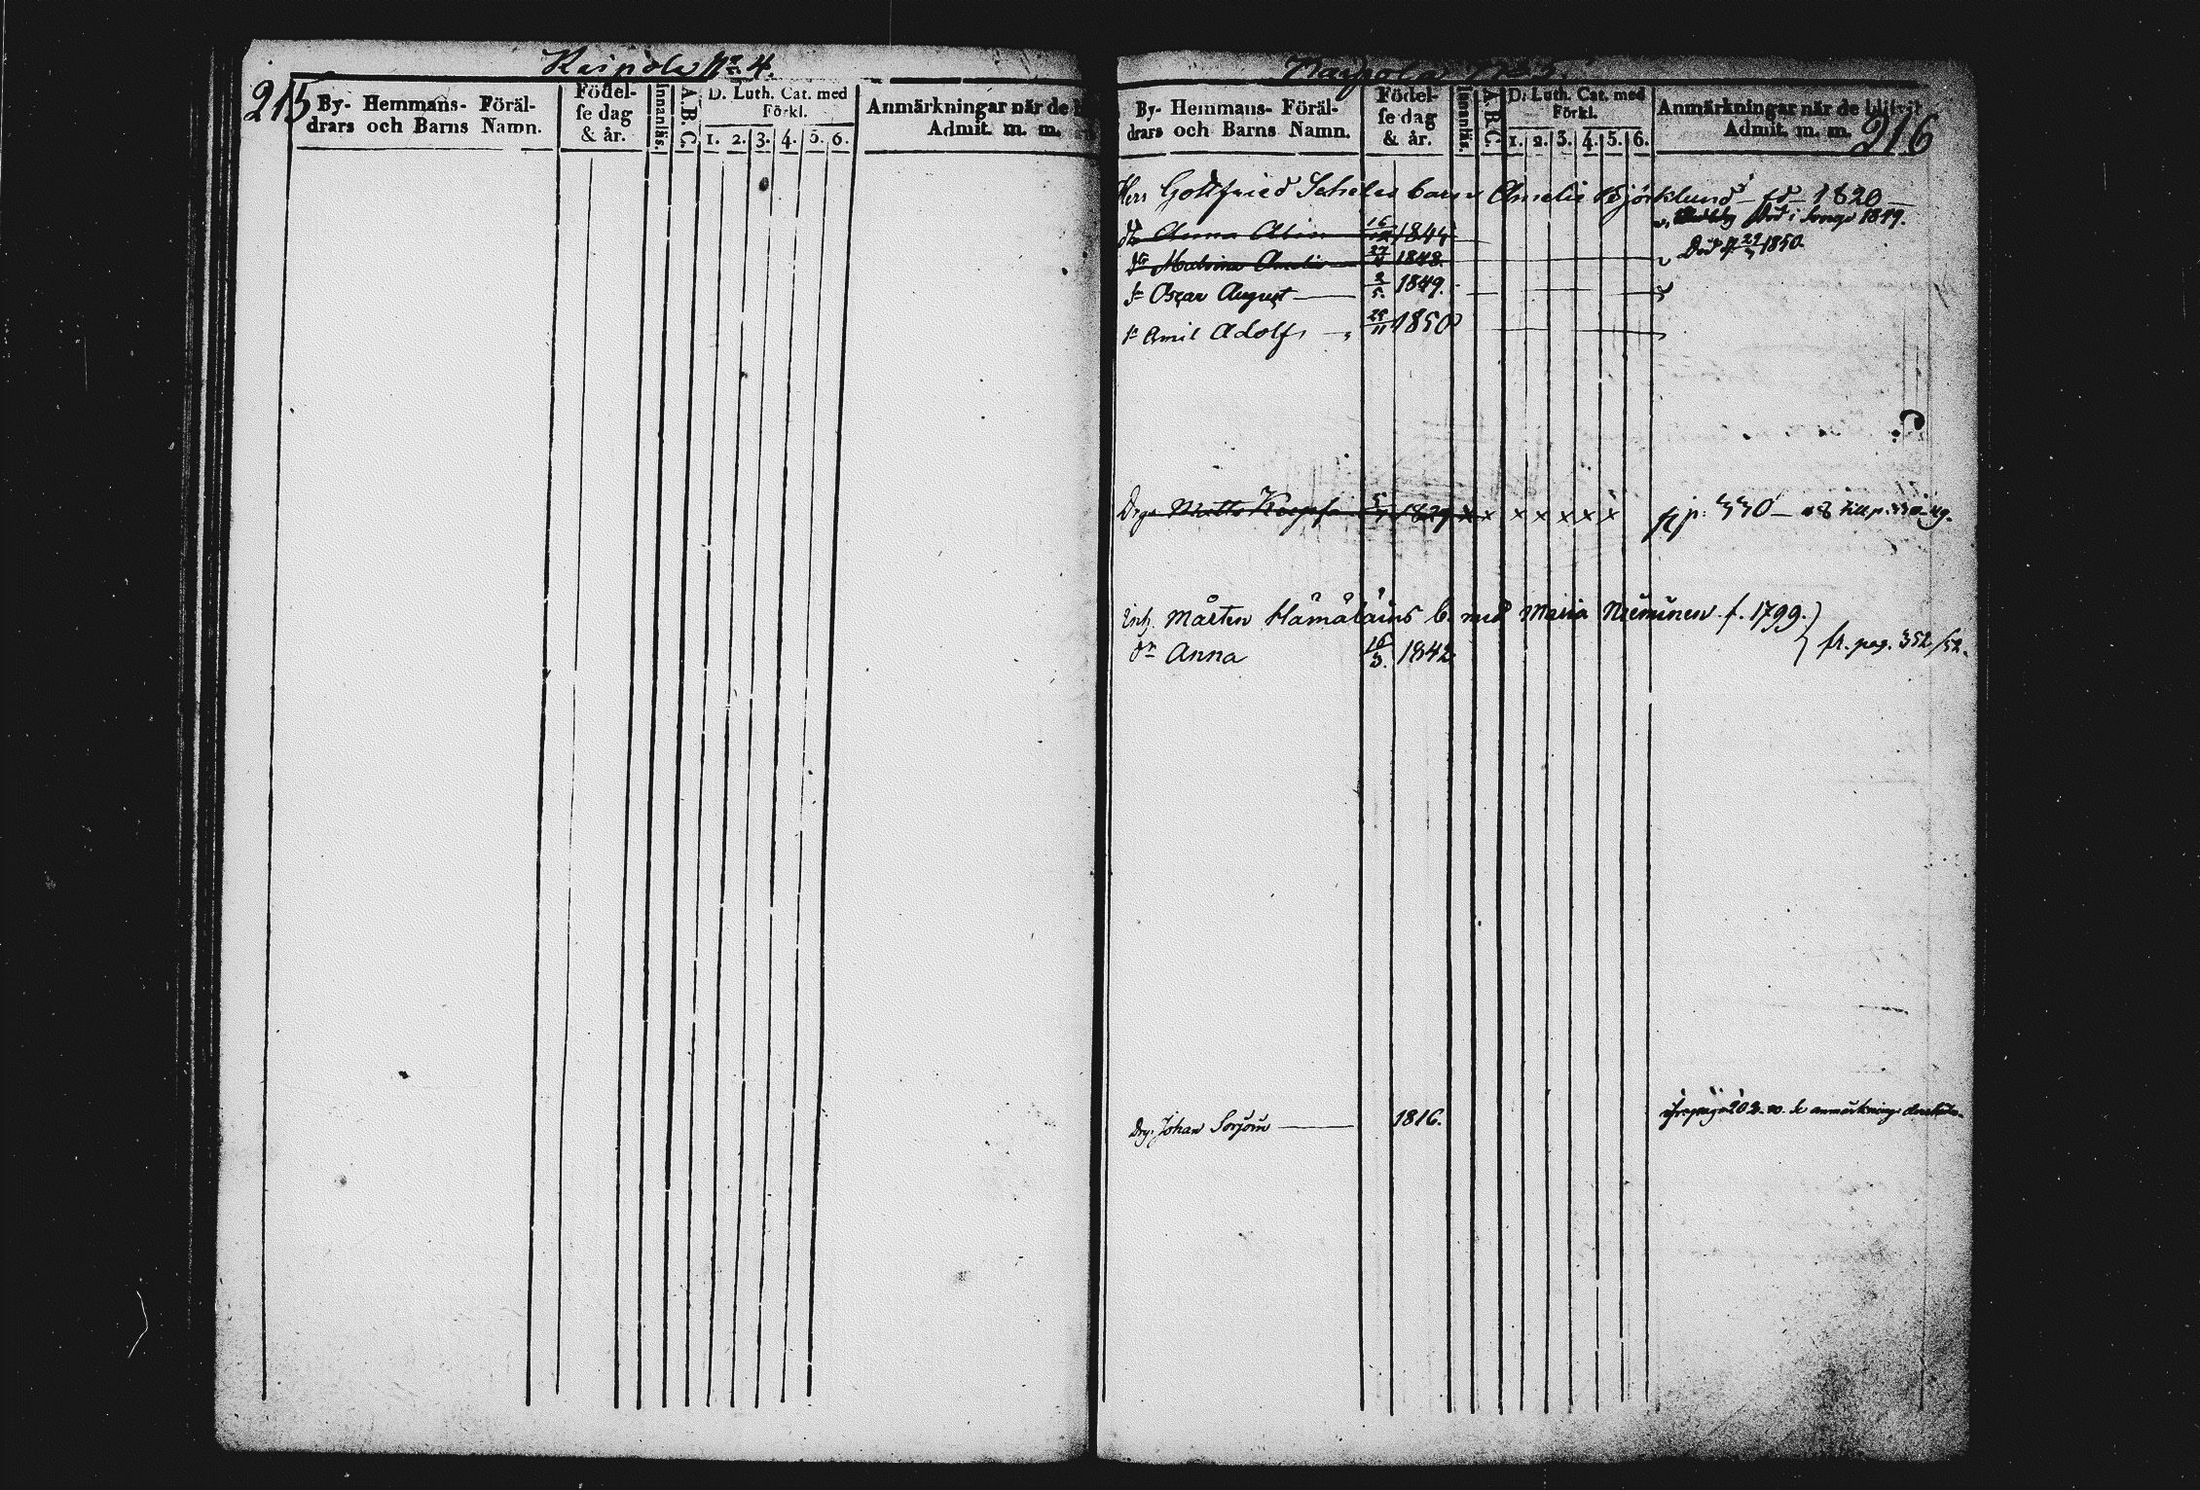 215
Kaipola No 4.
By- Hemmans- Föräl-
drars och Barns Namn.
Födel-
se dag
& år.
Innanläs.
A. B. C.
D. Luth. Cat. med
Förkl.
1. 2. 3. 4. 5. 6.
Anmärkningar när de
Admit. m. m.
Kaipola No 5.
216
By- Hemmans- Föräl-
drars och Barns Namn.
Födel-
se dag
& år.
Innanläs.
A. B. C.
D. Luth. Cat. med
Förkl.
1. 2. 3. 4. 5. 6.
Anmärkningar när de blifvit
Admit. m. m.
Herr Gottfried barn Amelie Björklund 1820
Anna 16/12 1844 Död i 1849.
Dr Malvina Amelie 27/ 1848. Död 1850.
Sn Oscar August 2/5. 1849.
Sn Amil Adolf 25/11 1850
Drge Matts 5/ 1829 x x x x x x x p: 330
Enk. Mårten Hämäläins b. med Maria Nieminen f. 1799.
dr Anna 16/3. 1842 fr. pag. 352/52.
Drg. Johan Sorjoin 1816. 202. anmärkning